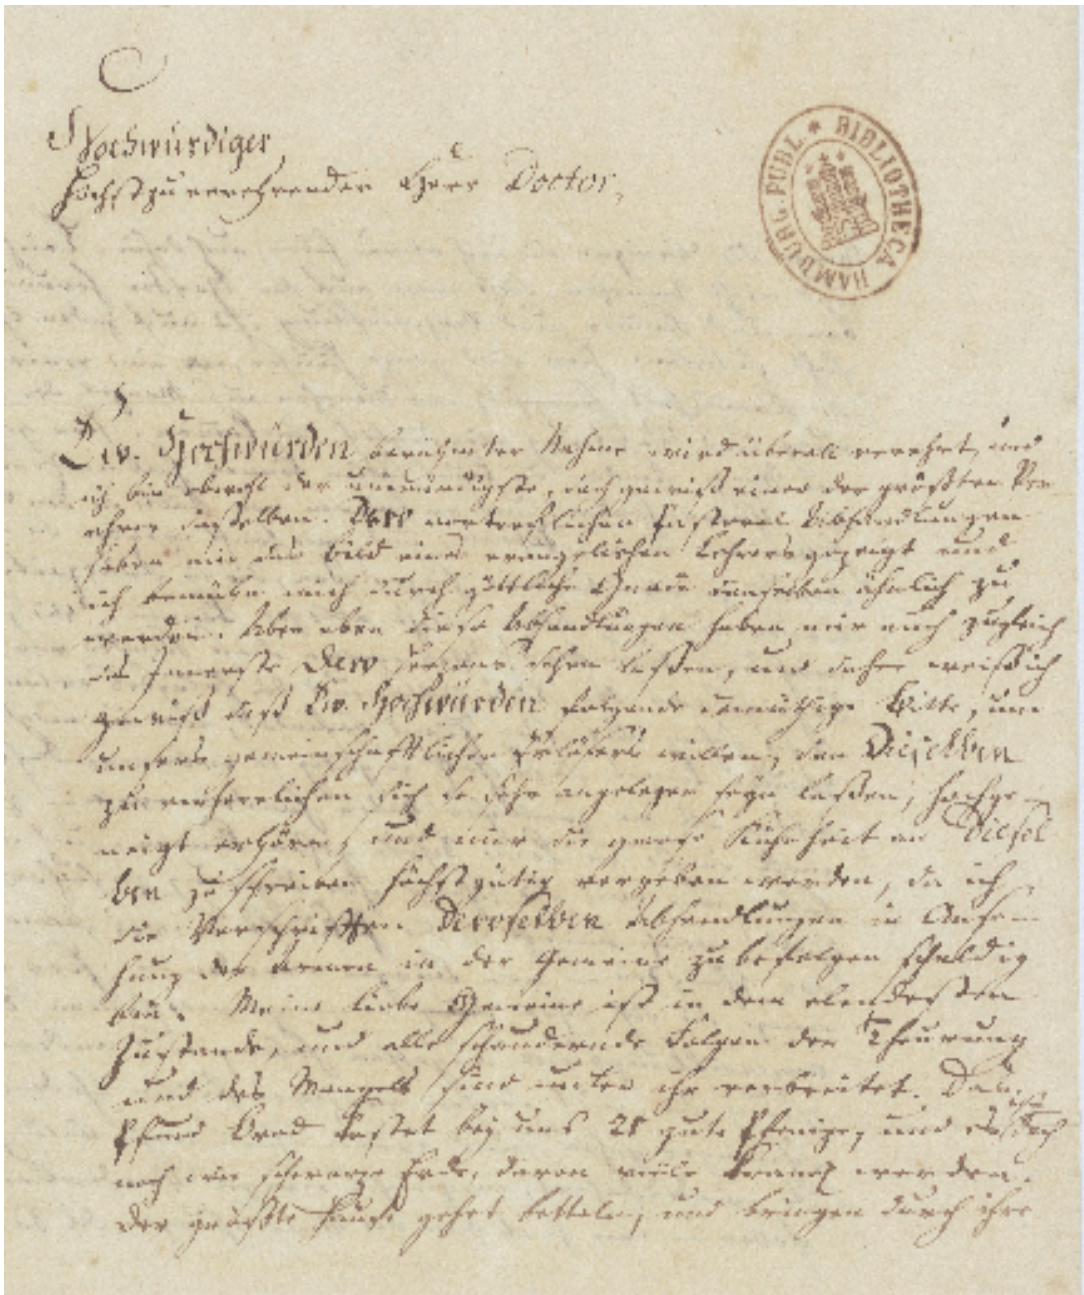 Hochwürdiger,
Höchstzuverehrender Herr Doctor,
HAMBURG. PUBL. * BIBLIOTHECA
Ew. Hochwürden berühmter Nahme wird überall verehret, und
ich bin obwohl der unwürdigste, doch gewiß einer der größten Ver
ehrer desselben. Dero vortreflichen Pastoral Abhandlungen
haben mir das Bild eines evangelischen Lehrers gezeigt und
ich bemühe mich durch göttliche Gnade demselben ähnlich zu
werden. Aber eben diese Abhandlungen haben mir auch zugleich
das Innerste Dero Herzens sehen laßen, und daher weiß ich
gewiß daß Ew. Hochwürden folgende demüthige Bitte, um
unsers gemeinschaftlichen Erlösers willen, den Dieselben
zu verherrlichen sich so sehr angelegen seyn laßen, hochge
neigt erhören, und mir die große Kühnheit an Diesel
ben zu schreiben höchst gütig vergeben werden, da ich
die Vorschriften Deroselben Abhandlungen in Anse
hung der Armen in der Gemeine zu befolgen schuldig
bin. Meine liebe Gemeine ist in dem elendesten
Zustande, und alle schaudernde Folgen der Theurung
und des Mangels sind unter ihr verbreitet. Das
Pfund Brod kostet bey uns 28 gute Pfenige, und ist doch
noch wie schwarze Erde, davon viele krank werden.
Der größte Haufe gehet betteln, und bringen durch ihre